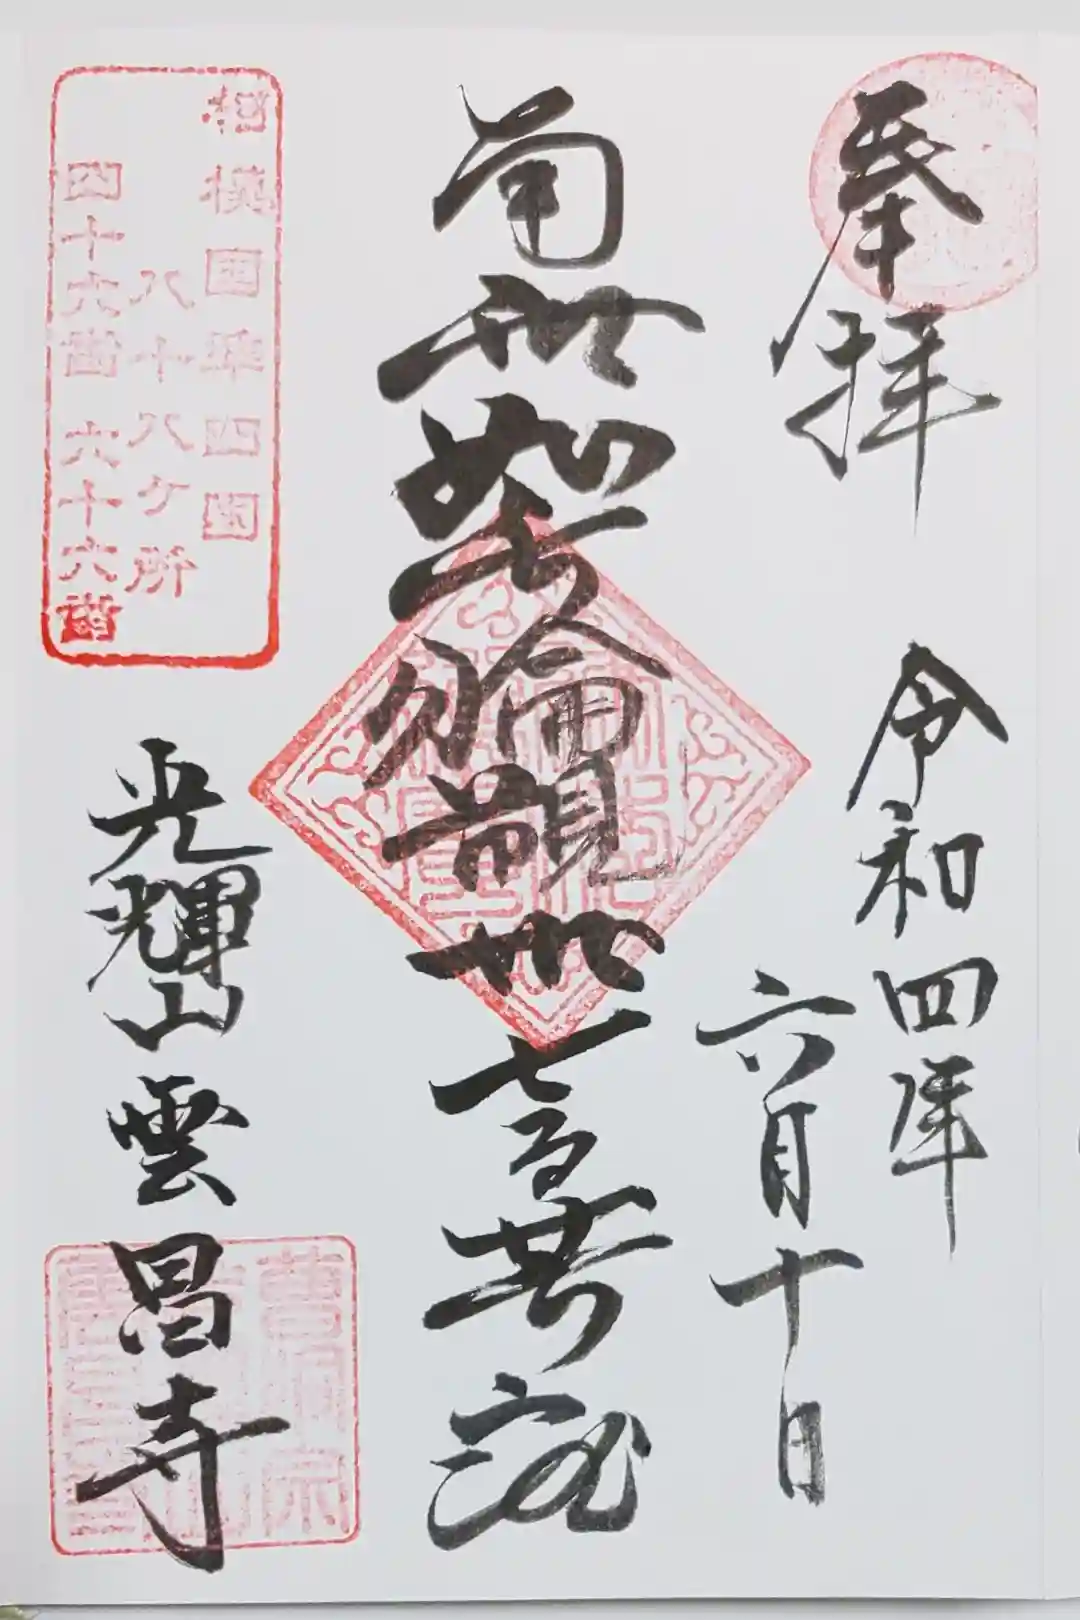 奉拝
令和四年
六月十日
南無如意輪観世音菩薩
相模国準四国
八十八ケ所
四十六番 六十六番
光輝山雲昌寺